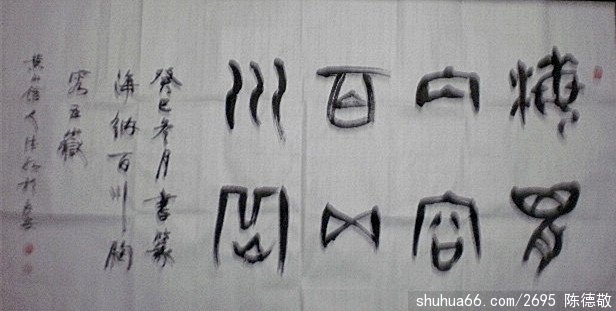 海内百川
胸容五嶽
癸巳冬月書篆
海納百川胸
容五嶽
shuhua66.com/2695 陈德敬